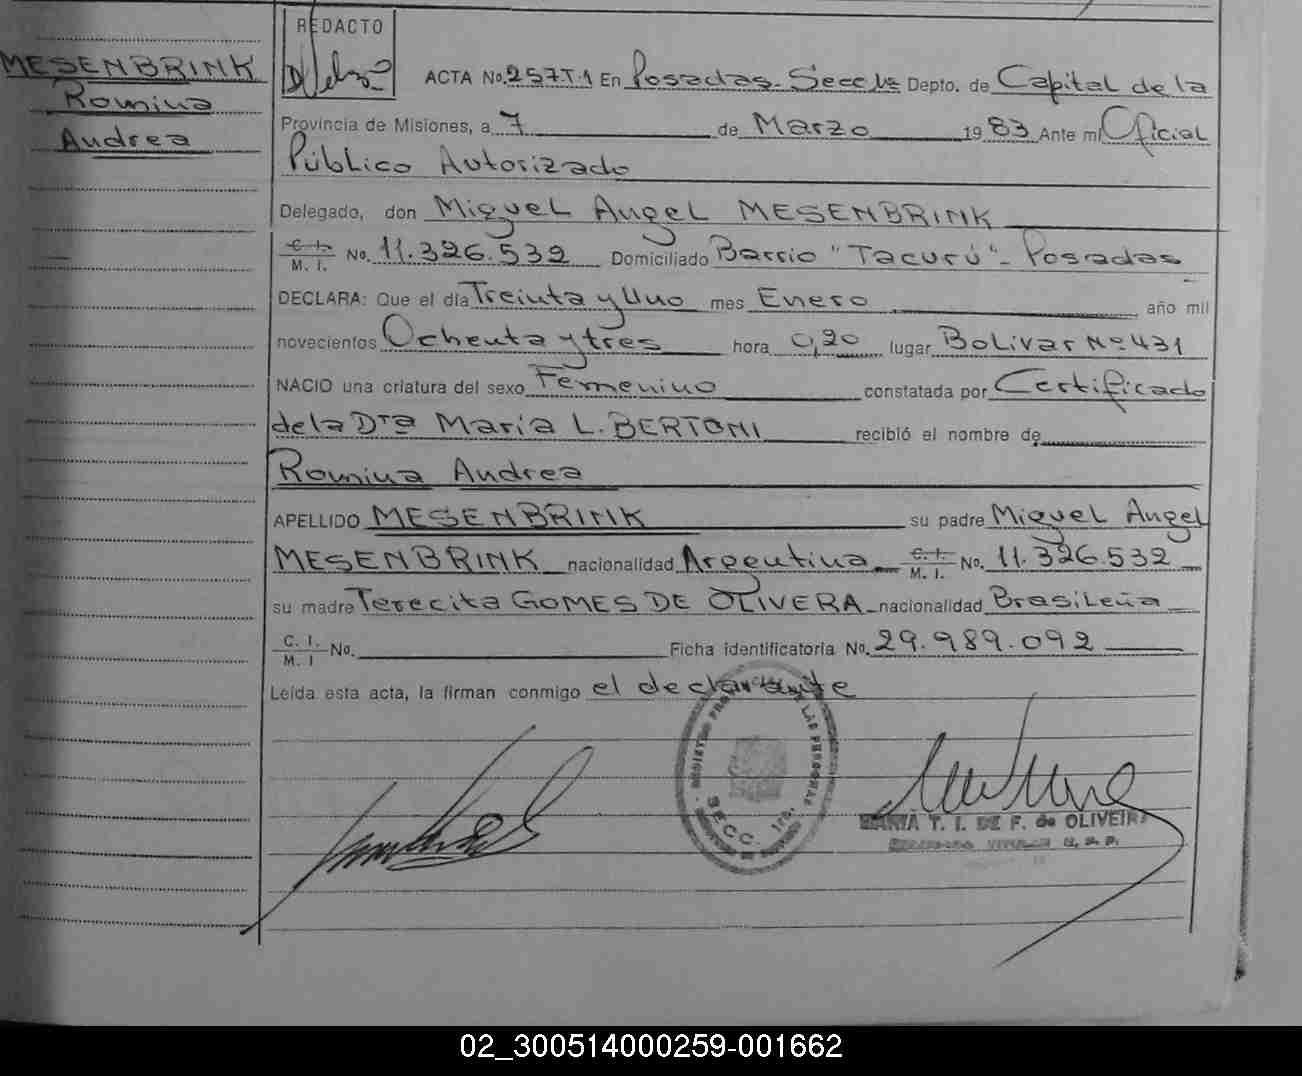 MESENBRINK
Romina
Andrea
REDACTO
ACTA No. 257 T.1 En Posadas - Secc 1a Depto. de Capital de la
Provincia de Misiones, a 7 de Marzo 1983 Ante mí Oficial
Público Autorizado
Delegado, don Miguel Angel MESENBRINK
C. I.
M. I. No. 11.326.532 Domiciliado Barrio "Tacurú" - Posadas
DECLARA: Que el día Treinta y Uno mes Enero año mil
novecientos Ochenta y tres hora 0,20 lugar Bolivar Nº 431
NACIO una criatura del sexo Femenino constatada por Certificado
de la Dra Maria L. BERTONI recibió el nombre de
Romina Andrea
APELLIDO MESENBRINK su padre Miguel Angel
MESENBRINK nacionalidad Argentina C. I. M. I. No. 11.326.532
su madre Terecita GOMES DE OLIVERA nacionalidad Brasileña
C. I.
M. I No. Ficha identificatoria No. 29.989.092
Leída esta acta, la firman conmigo el declarante
LAS PERSONAS
SECC. 1ra.
MARIA T. I. DE F. de OLIVEIRA
02_300514000259-001662